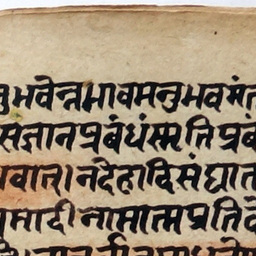 नुभवेन्नभावमनुभवमंत
संज्ञानप्रबंधंस्मृतिप्रबं
भवात्।नदेहादिसंघात
मादीनामात्मप्रतिवे